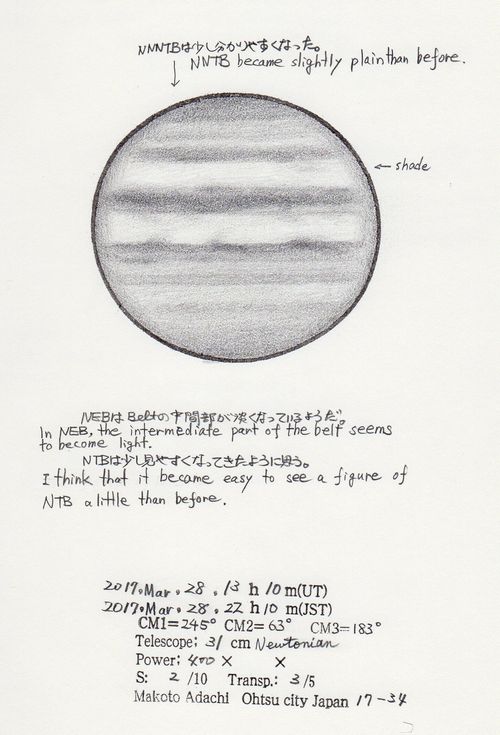 NNNTBは少し分かりやすくなった。
NNTB became slightly plain than before.
← shade
NEBはBeltの中間部が淡くなっているようだ。
In NEB, the intermediate part of the belt seems
to become light.
NTBは少し見やすくなってきたように思う。
I think that it became easy to see a figure of
NTB a little than before.
2017. Mar. 28. 13 h 10 m(UT)
2017. Mar. 28. 22 h 10 m(JST)
CM1=245° CM2=63° CM3=183°
Telescope: 31 cm Newtonian
Power: 400 × ×
S: 2 /10 Transp.: 3/5
Makoto Adachi Ohtsu city Japan 17-34